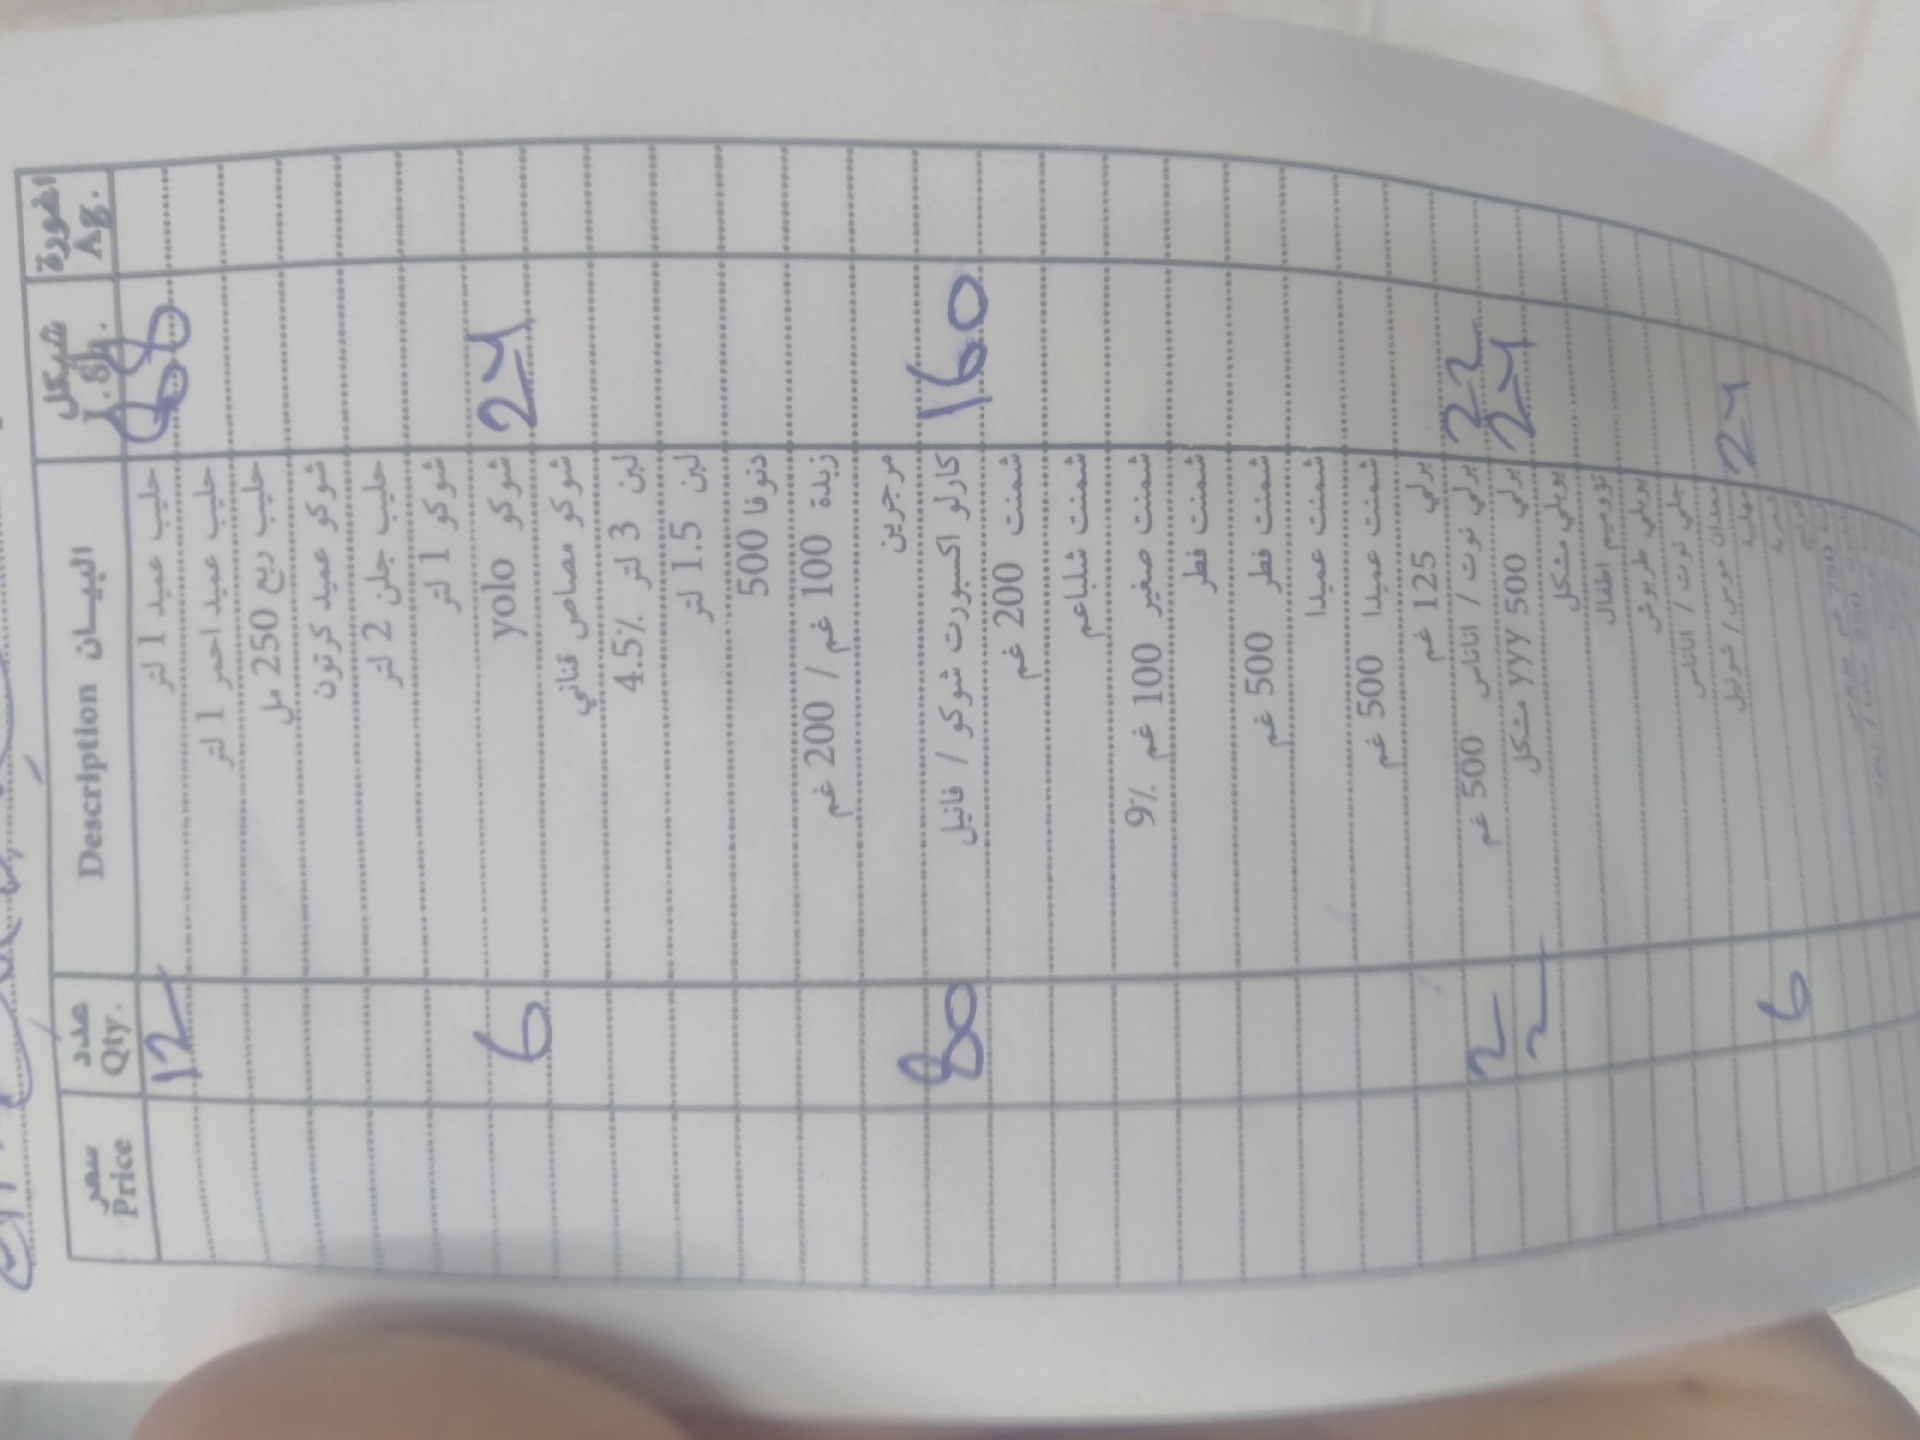 سعر عدد البيان شيكل اغورة
Price Qty. Description I.Sh. Ag.
12 حليب عميد 1 لتر 68
حليب عميد احمر 1 لتر
حليب ربع 250 مل
شوكو عميد كرتون
حليب جلن 2 لتر
شوكو 1 لتر
6 شوكو yolo 24
شوكو مصاص قناني
لبن 3 لتر 4.5%
لبن 1.5 لتر
دنوفا 500
زبدة 100 غم / 200 غم
مرجرين
80 كارلو اكسبورت شوكو / فانيل 160
شمنت 200 غم
شمنت شلباعم
شمنت صغير 100 غم 9%
شمنت فطر
شمنت فطر 500 غم
شمنت عميدا
شمنت عميدا 500 غم
برلي 125 غم
2 برلي توت / اناناس 500 غم 22
2 برلي 500 yyy مشكل 24
يوبلي مشكل
توميم اطفال
يوبلي طربوش
جلي توت / اناناس
معدان موس / شوتيل 24
6